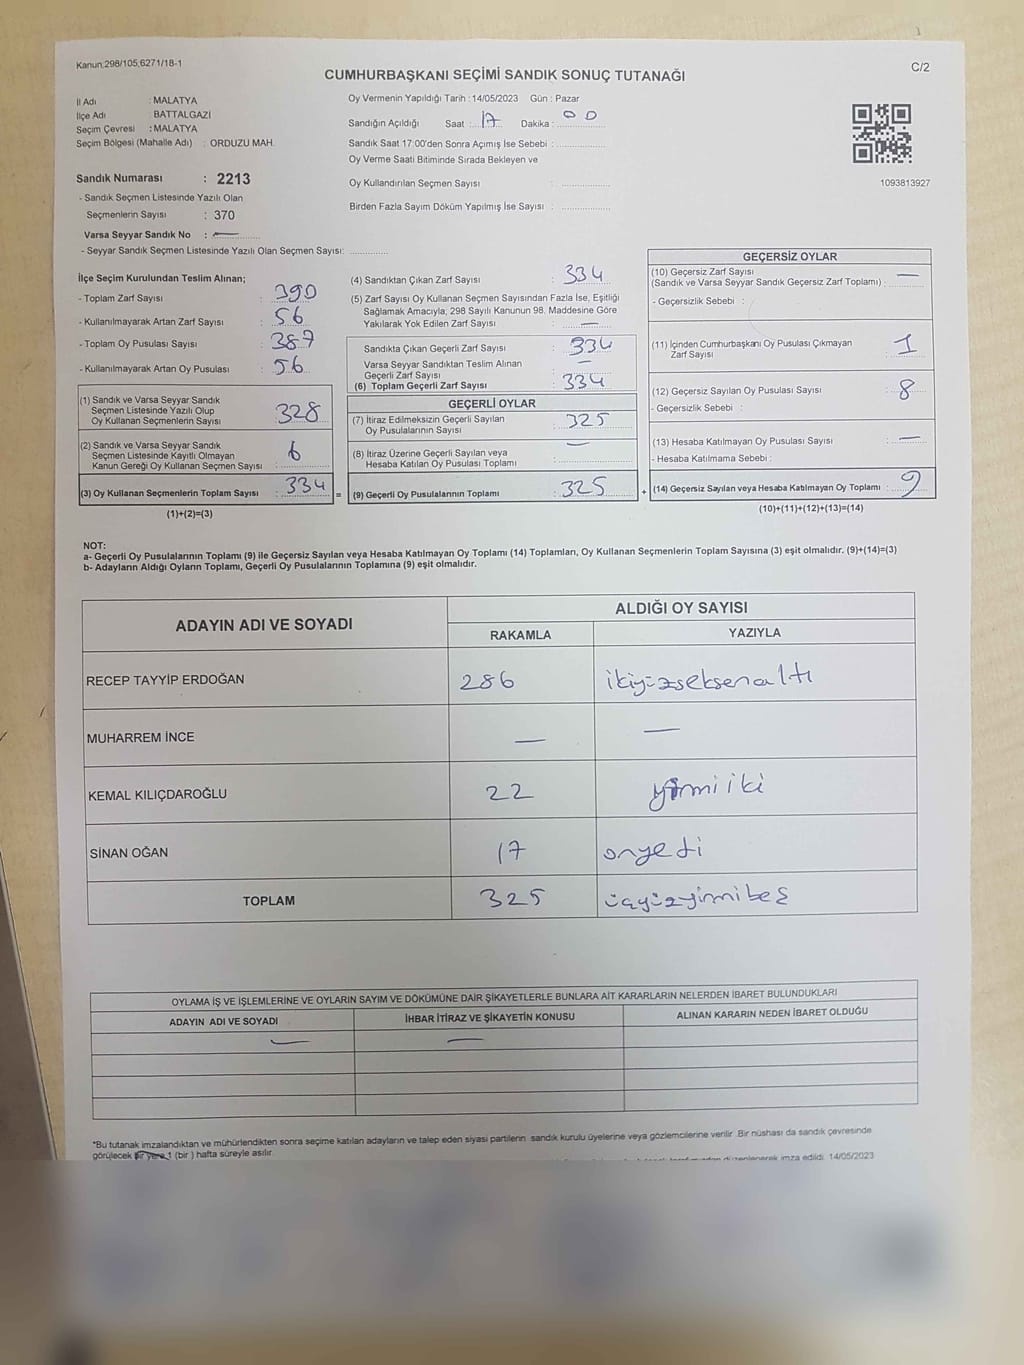 Kanun,298/105,6271/18-1
CUMHURBAŞKANI SEÇİMİ SANDIK SONUÇ TUTANAĞI
C/2
İl Adı : MALATYA
İlçe Adı : BATTALGAZİ
Seçim Çevresi : MALATYA
Seçim Bölgesi (Mahalle Adı) : ORDUZU MAH.
Sandık Numarası : 2213
- Sandık Seçmen Listesinde Yazılı Olan
Seçmenlerin Sayısı : 370
Varsa Seyyar Sandık No : —
- Seyyar Sandık Seçmen Listesinde Yazılı Olan Seçmen Sayısı: ............
Oy Vermenin Yapıldığı Tarih : 14/05/2023 Gün : Pazar
Sandığın Açıldığı Saat : 17 Dakika : 00
Sandık Saat 17:00'den Sonra Açımış İse Sebebi : ................
Oy Verme Saati Bitiminde Sırada Bekleyen ve
Oy Kullandırılan Seçmen Sayısı : ................
Birden Fazla Sayım Döküm Yapılmış İse Sayısı : ................
1093813927
İlçe Seçim Kurulundan Teslim Alınan;
- Toplam Zarf Sayısı : 390
- Kullanılmayarak Artan Zarf Sayısı : 56
- Toplam Oy Pusulası Sayısı : 387
- Kullanılmayarak Artan Oy Pusulası : 56
(1) Sandık ve Varsa Seyyar Sandık
Seçmen Listesinde Yazılı Olup
Oy Kullanan Seçmenlerin Sayısı : 328
(2) Sandık ve Varsa Seyyar Sandık
Seçmen Listesinde Kayıtlı Olmayan
Kanun Gereği Oy Kullanan Seçmen Sayısı : 6
(3) Oy Kullanan Seçmenlerin Toplam Sayısı : 334
(1)+(2)=(3)
(4) Sandıktan Çıkan Zarf Sayısı : 334
(5) Zarf Sayısı Oy Kullanan Seçmen Sayısından Fazla İse, Eşitliği
Sağlamak Amacıyla, 298 Sayılı Kanunun 98. Maddesine Göre
Yakılarak Yok Edilen Zarf Sayısı : —
Sandıkta Çıkan Geçerli Zarf Sayısı : 334
Varsa Seyyar Sandıktan Teslim Alınan
Geçerli Zarf Sayısı : —
(6) Toplam Geçerli Zarf Sayısı : 334
GEÇERLİ OYLAR
(7) İtiraz Edilmeksizin Geçerli Sayılan
Oy Pusulalarının Sayısı : 325
(8) İtiraz Üzerine Geçerli Sayılan veya
Hesaba Katılan Oy Pusulası Toplamı : —
= (9) Geçerli Oy Pusulalarının Toplamı : 325 +
GEÇERSİZ OYLAR
(10) Geçersiz Zarf Sayısı
(Sandık ve Varsa Seyyar Sandık Geçersiz Zarf Toplamı) : —
- Geçersizlik Sebebi :
(11) İçinden Cumhurbaşkanı Oy Pusulası Çıkmayan
Zarf Sayısı : 1
(12) Geçersiz Sayılan Oy Pusulası Sayısı : 8
- Geçersizlik Sebebi :
(13) Hesaba Katılmayan Oy Pusulası Sayısı : —
- Hesaba Katılmama Sebebi :
(14) Geçersiz Sayılan veya Hesaba Katılmayan Oy Toplamı : 9
(10)+(11)+(12)+(13)=(14)
NOT:
a- Geçerli Oy Pusulalarının Toplamı (9) ile Geçersiz Sayılan veya Hesaba Katılmayan Oy Toplamı (14) Toplamları, Oy Kullanan Seçmenlerin Toplam Sayısına (3) eşit olmalıdır. (9)+(14)=(3)
b- Adayların Aldığı Oyların Toplamı, Geçerli Oy Pusulalarının Toplamına (9) eşit olmalıdır.
ADAYIN ADI VE SOYADI ALDIĞI OY SAYISI
RAKAMLA YAZIYLA
RECEP TAYYİP ERDOĞAN 286 ikiyüzseksenaltı
MUHARREM İNCE — —
KEMAL KILIÇDAROĞLU 22 yirmiiki
SİNAN OĞAN 17 onyedi
TOPLAM 325 üçyüzyirmibeş
OYLAMA İŞ VE İŞLEMLERİNE VE OYLARIN SAYIM VE DÖKÜMÜNE DAİR ŞİKAYETLERLE BUNLARA AİT KARARLARIN NELERDEN İBARET BULUNDUKLARI
ADAYIN ADI VE SOYADI İHBAR İTİRAZ VE ŞİKAYETİN KONUSU ALINAN KARARIN NEDEN İBARET OLDUĞU
— —
*Bu tutanak imzalandıktan ve mühürlendikten sonra seçime katılan adayların ve talep eden siyasi partilerin sandık kurulu üyelerine veya gözlemcilerine verilir. Bir nüshası da sandık çevresinde
görülecek bir yere 1 (bir ) hafta süreyle asılır.
düzenlenerek imza edildi. 14/05/2023